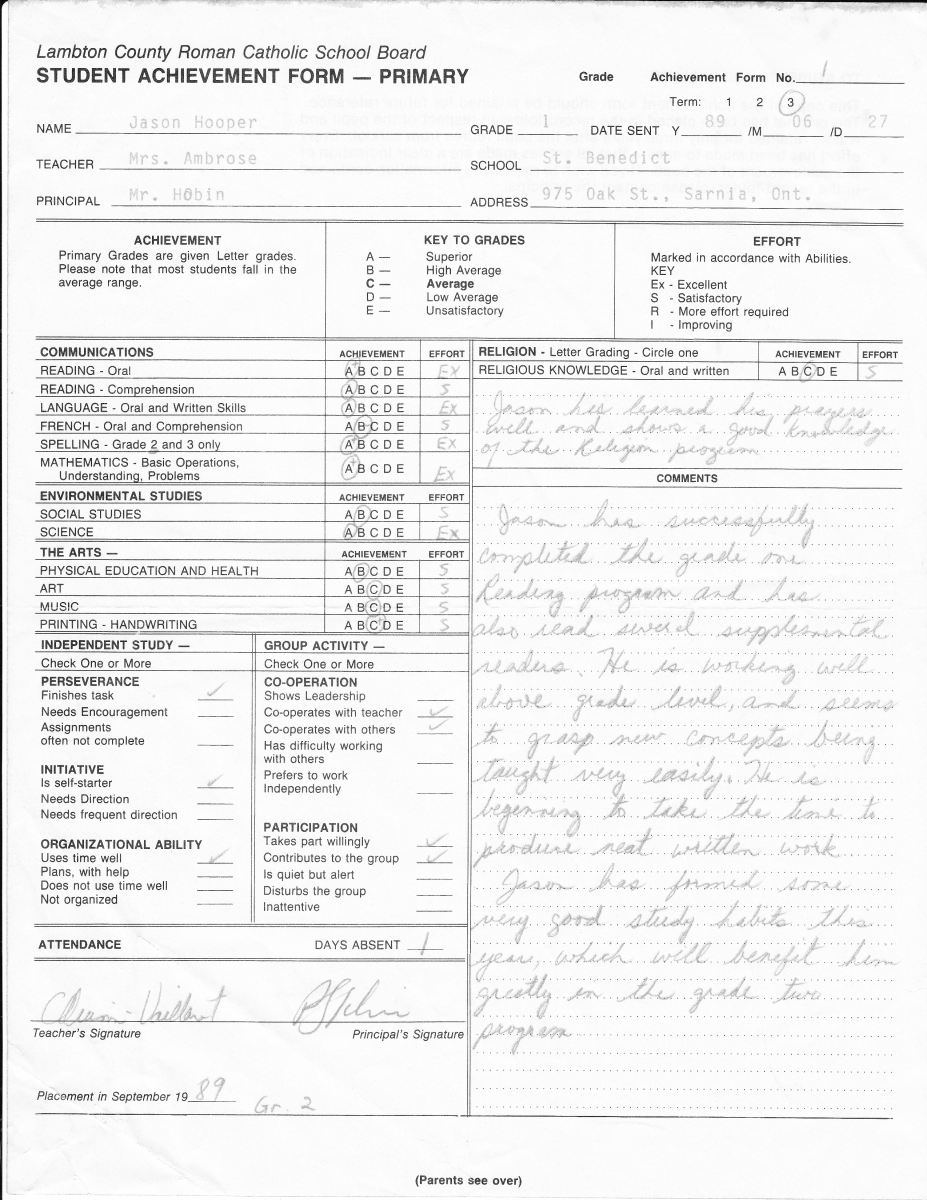 Lambton County Roman Catholic School Board
STUDENT ACHIEVEMENT FORM — PRIMARY
Grade Achievement Form No. 1
Term: 1 2 3
NAME Jason Hooper
GRADE 1 DATE SENT Y 89 /M 06 /D 27
TEACHER Mrs. Ambrose
SCHOOL St. Benedict
PRINCIPAL Mr. Hobin
ADDRESS 975 Oak St., Sarnia, Ont.
ACHIEVEMENT
Primary Grades are given Letter grades.
Please note that most students fall in the
average range.
KEY TO GRADES
A — Superior
B — High Average
C — Average
D — Low Average
E — Unsatisfactory
EFFORT
Marked in accordance with Abilities.
KEY
Ex - Excellent
S - Satisfactory
R - More effort required
I - Improving
COMMUNICATIONS ACHIEVEMENT EFFORT
READING - Oral A B C D E Ex
READING - Comprehension A B C D E S
LANGUAGE - Oral and Written Skills A B C D E Ex
FRENCH - Oral and Comprehension A B C D E S
SPELLING - Grade 2 and 3 only A B C D E Ex
MATHEMATICS - Basic Operations,
Understanding, Problems A B C D E Ex
ENVIRONMENTAL STUDIES ACHIEVEMENT EFFORT
SOCIAL STUDIES A B C D E S
SCIENCE A B C D E Ex
THE ARTS — ACHIEVEMENT EFFORT
PHYSICAL EDUCATION AND HEALTH A B C D E S
ART A B C D E S
MUSIC A B C D E S
PRINTING - HANDWRITING A B C D E S
INDEPENDENT STUDY —
Check One or More
PERSEVERANCE
Finishes task ✓
Needs Encouragement
Assignments
often not complete
INITIATIVE
Is self-starter ✓
Needs Direction
Needs frequent direction
ORGANIZATIONAL ABILITY
Uses time well ✓
Plans, with help
Does not use time well
Not organized
GROUP ACTIVITY —
Check One or More
CO-OPERATION
Shows Leadership
Co-operates with teacher ✓
Co-operates with others ✓
Has difficulty working
with others
Prefers to work
Independently
PARTICIPATION
Takes part willingly ✓
Contributes to the group ✓
Is quiet but alert
Disturbs the group
Inattentive
ATTENDANCE DAYS ABSENT 1
Teacher's Signature
Principal's Signature
Placement in September 19 89
Gr. 2
RELIGION - Letter Grading - Circle one ACHIEVEMENT EFFORT
RELIGIOUS KNOWLEDGE - Oral and written A B C D E S
Jason has learned his prayers
well and shows a good knowledge
of the Religion program
COMMENTS
Jason has successfully
completed the grade one
Reading program and has
also read several supplemental
readers. He is working well
above grade level, and seems
to grasp new concepts being
taught very easily. He is
beginning to take the time to
produce neat written work
Jason has formed some
very good study habits this
year, which will benefit him
greatly in the grade two
program
(Parents see over)